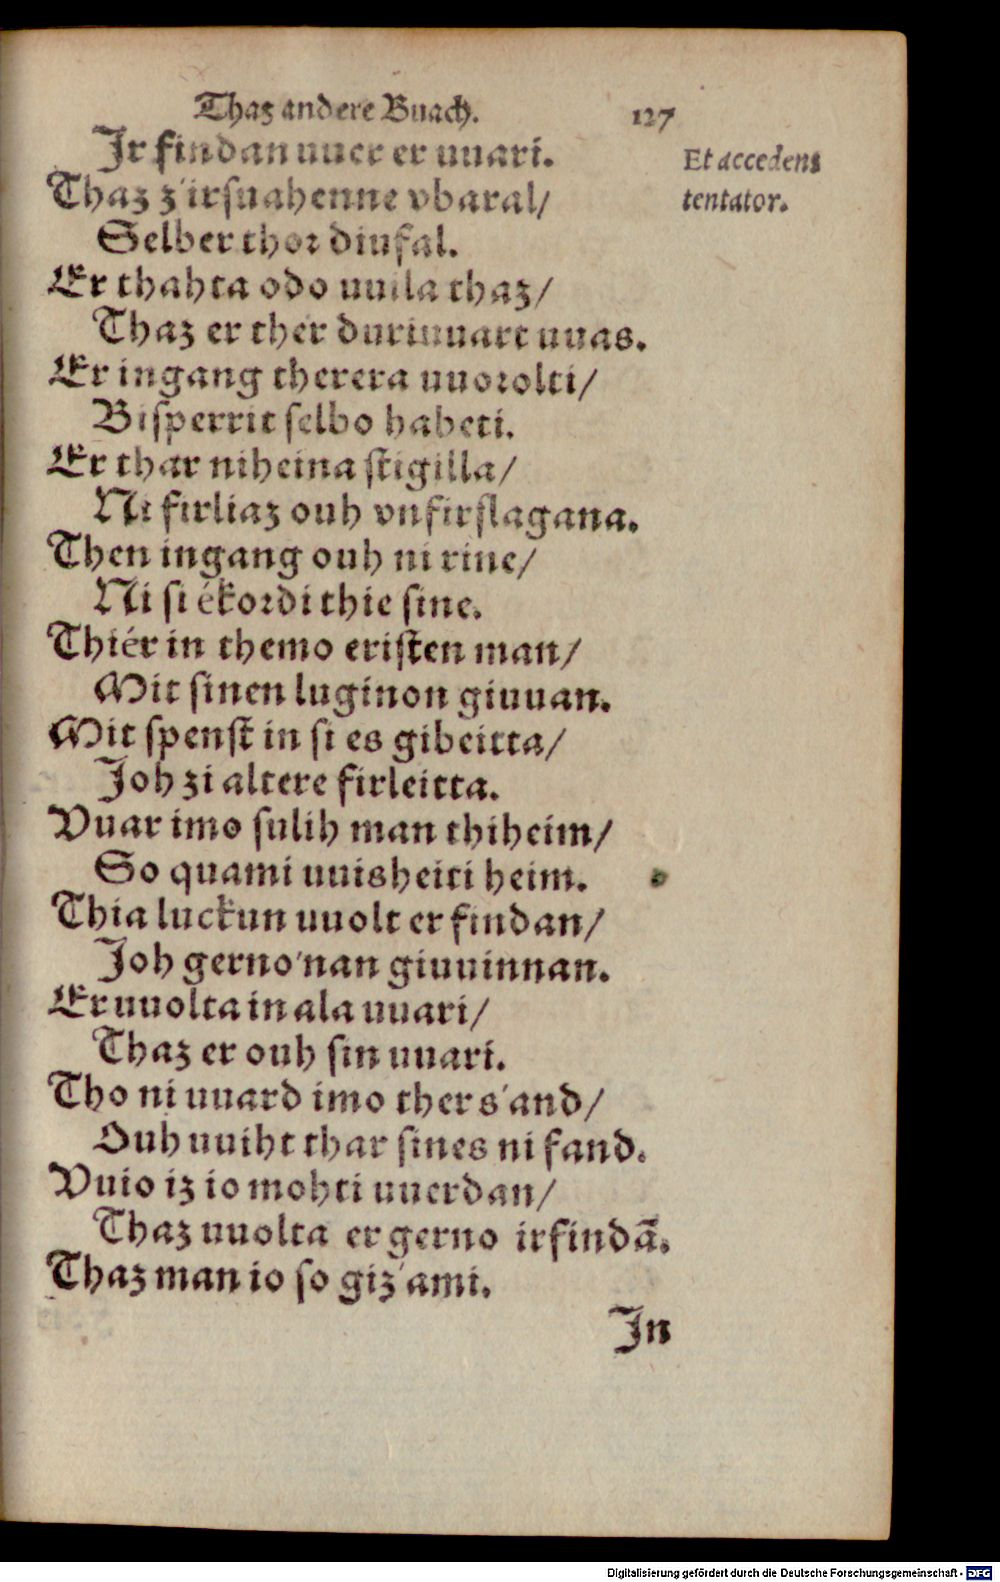 Thaz andere Buach. 127
Jr findan uuer er uuari.
Et accedens
tentator.
Thaz z'irsuahenne vbaral/
Selber thor diufal.
Er thahta odo uuila thaz/
Thaz er ther duriuuart uuas.
Er ingang therera uuorolti/
Bisperrit selbo habeti.
Er thar niheina stigilla/
Ni firliaz ouh vnfirslagana.
Then ingang ouh ni rine/
Ni si ékordi thie sine.
Thiér in themo eristen man/
Mit sinen luginon giuuan.
Mit spenst in si es gibeitta/
Joh zi altere firleitta.
Vuar imo sulih man thiheim/
So quami uuisheiti heim.
Thia luckun uuolt er findan/
Joh gerno'nan giuuinnan.
Er uuolta in ala uuari/
Thaz er ouh sin uuari.
Tho ni uuard imo ther s'and/
Ouh uuiht thar sines ni fand.
Vuio iz io mohti uuerdan/
Thaz uuolta er gerno irfindā.
Thaz man io so giz'ami.
Jn
Digitalisierung gefördert durch die Deutsche Forschungsgemeinschaft - DFG